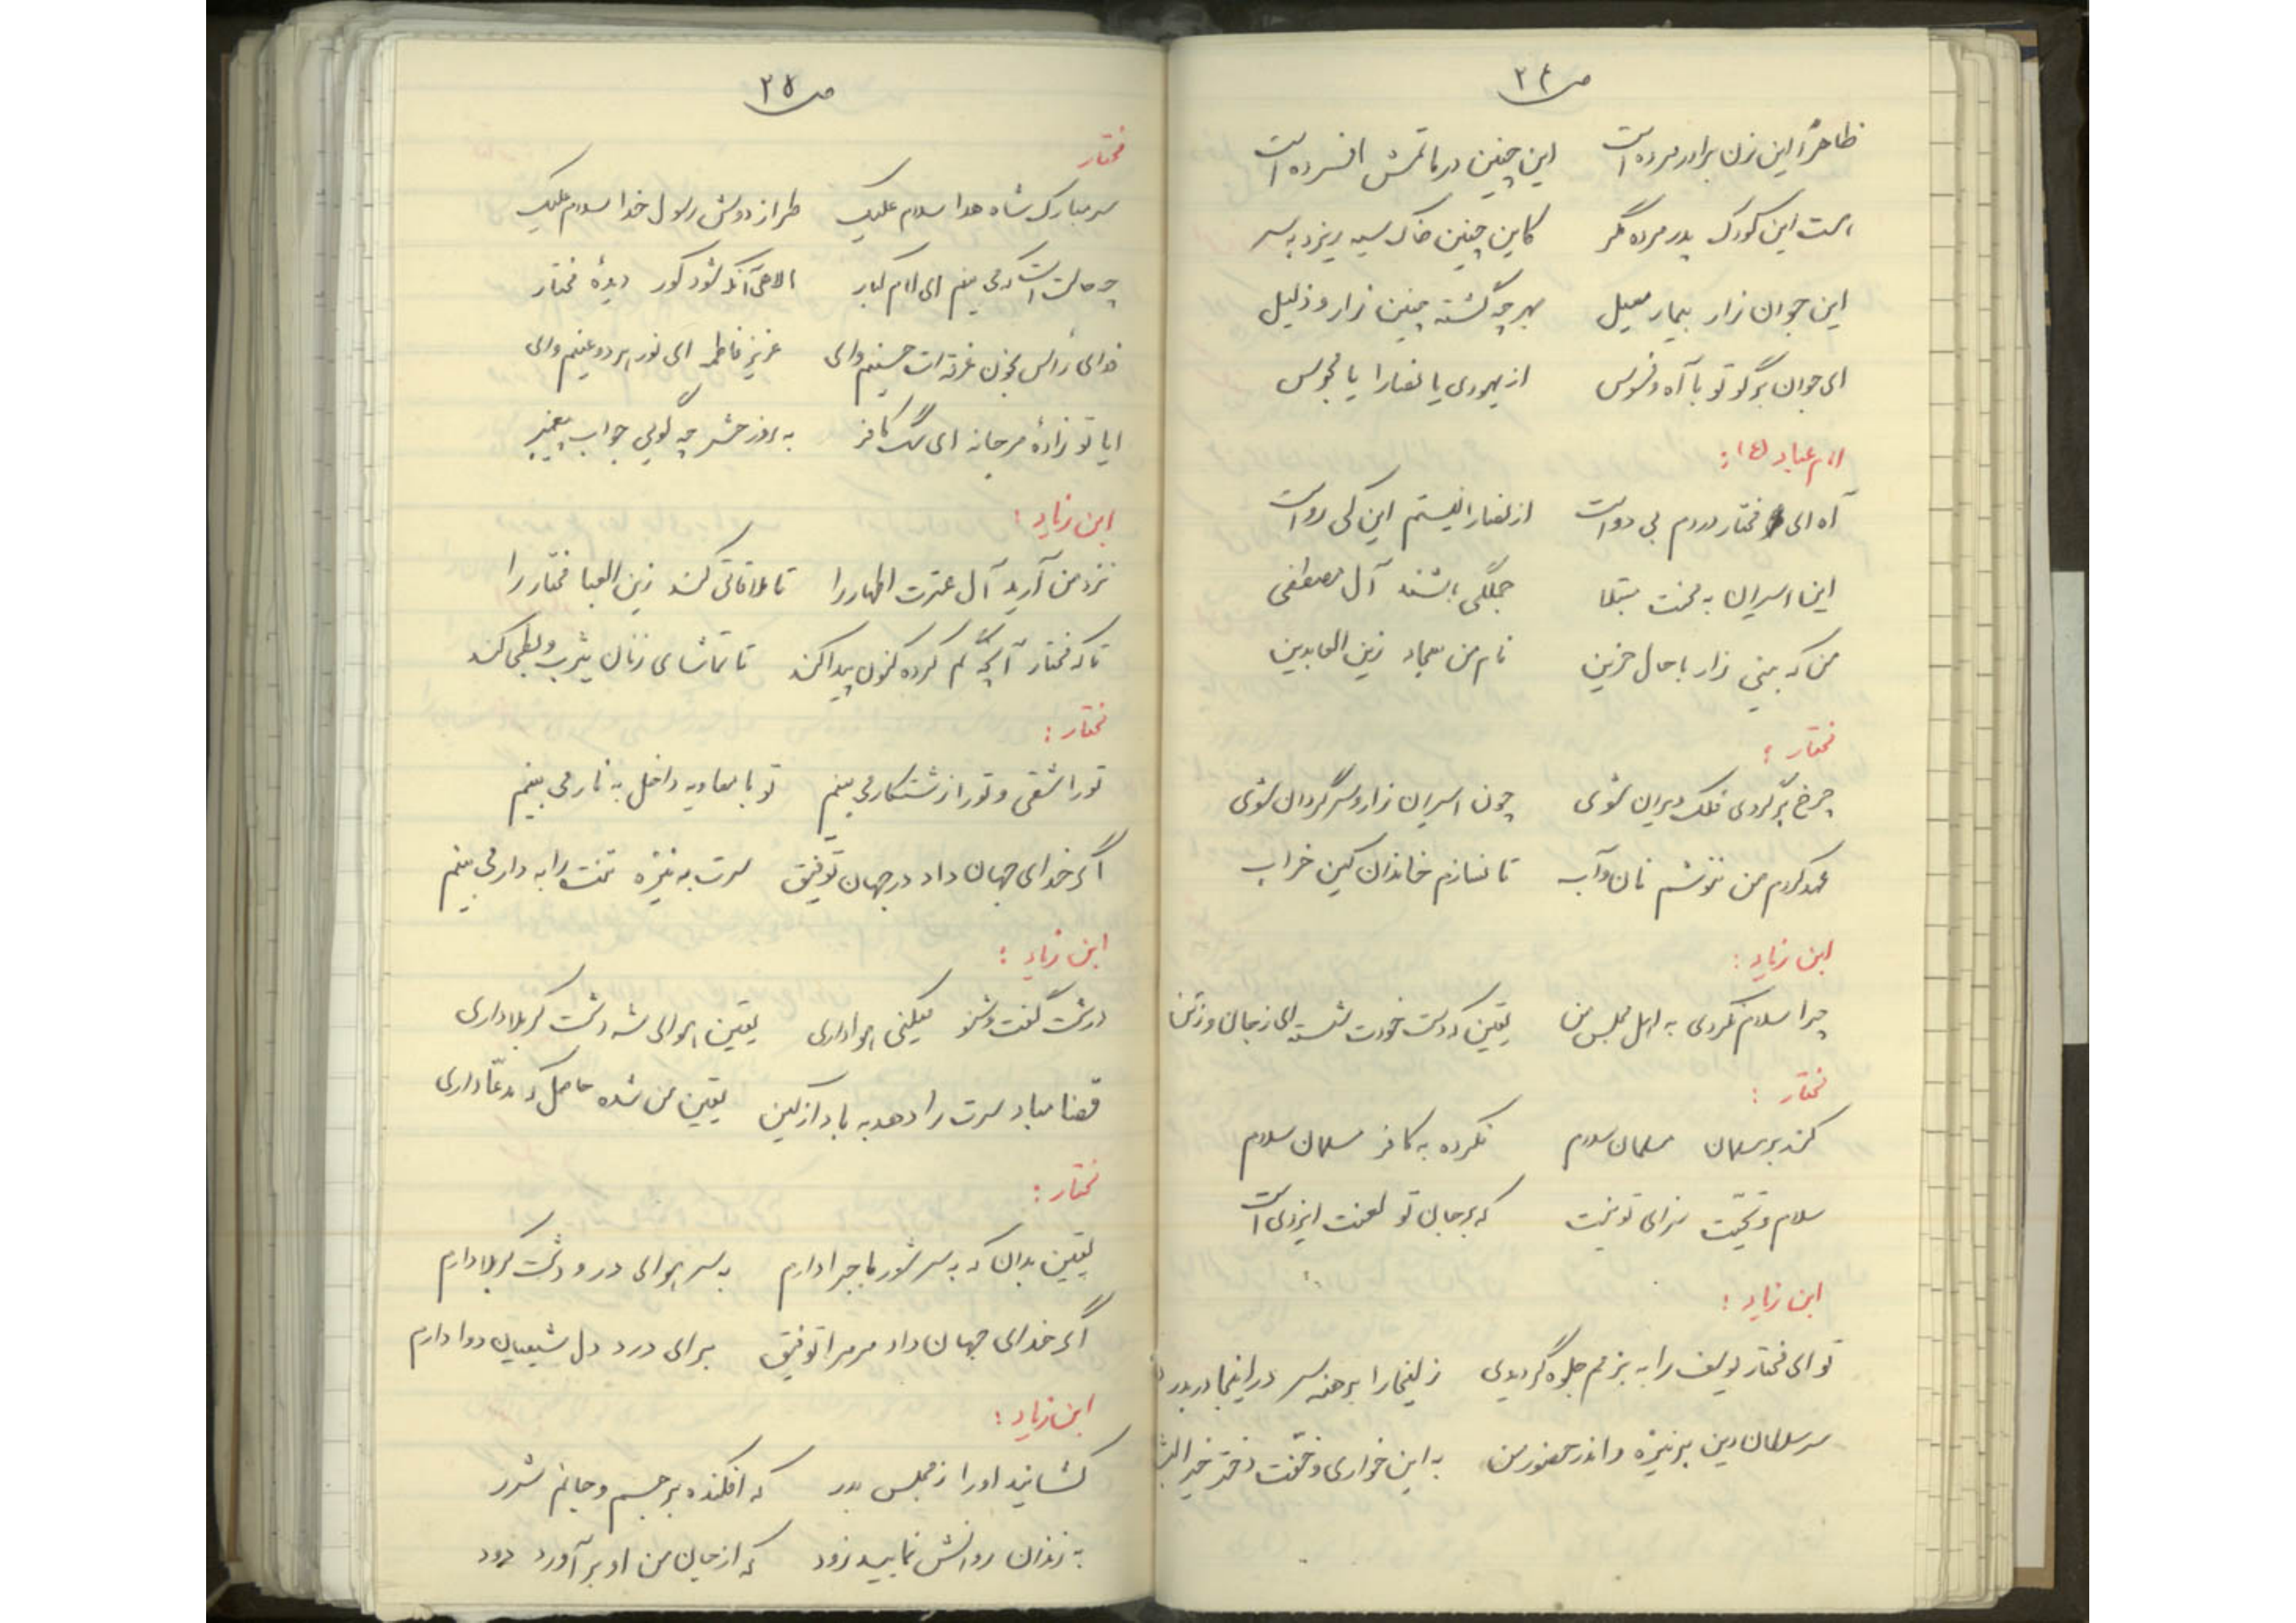 ص ۲۴
ظاهراً این زن برادر مرده است    این چنین در ماتمش افسرده است
هست این کودک پدر مرده مگر    کاین چنین خاک سیه ریزد به سر
این جوان زار بیمار معیل    بهر چه گشته چنین زار و ذلیل
ای جوان برگو تو با آه و فسوس    از یهودی یا نصارا یا مجوس
امام عباد (ع):
آه ای مختار دردم بی دواست    از نصارا نیستم این کی رواست
این اسیران به محنت مبتلا    جملگی باشند آل مصطفی
من که بینی زار با حال حزین    نام من سجاد زین العابدین
مختار:
چرخ برگردی فلک ویران شوی    چون اسیران زار و سرگردان شوی
عهد کردم من ننوشم نان و آب    تا نسازم خاندان کین خراب
ابن زیاد:
چرا سلام نکردی به اهل مجلس من    یقین که دست خودت شسته‌ای ز جان و ز تن
مختار:
کند بر مسلمان مسلمان سلام    نکرده به کافر مسلمان سلام
سلام و تحیت سزای تو نیست    که بر جان تو لعنت ایزدی است
ابن زیاد:
تو ای مختار یوسف را به بزمم جلوه‌گر دیدی    زلیخا را برهنه سر در اینجا دربدر
سر سلطان دین بر نیزه و اندر حضور من    به این خواری و خفت دختر خیر البشر
ص ۲۵
مختار
سر مبارک شاه هدا سلام علیک    طراز دوش رسول خدا سلام علیک
چه حالت است که می بینم ای امام کبار    الاهی آنکه شود کور دیدهٔ مختار
فدای رأس بخون غرقه‌ات حسینم وای    عزیز فاطمه ای نور هر دو عینم وای
ایا تو زادهٔ مرجانه ای سگ کافر    به روز حشر چه گویی جواب پیغمبر
ابن زیاد:
نزد من آرید آل عترت اطهار را    تا ملاقاتی کند زین العبا مختار را
تا که مختار آنچه گم کرده کنون پیدا کند    تا تماشای زنان یثرب و بطحی کند
مختار:
تو را شقی و تو را زشتکار می بینم    تو با معاویه داخل به نار می بینم
اگر خدای جهان داد در جهان توفیق    سرت به نیزه تنت را به دار می بینم
ابن زیاد:
درشت گفت و شنو میکنی هوا داری    یقین هوای شه دشت کربلا داری
قضا مباد سرت را دهد به باد از کین    یقین من شده حاصل که مدعا داری
مختار:
یقین بدان که به سر شور ماجرا دارم    به سر هوای در و دشت کربلا دارم
اگر خدای جهان داد مر مرا توفیق    برای درد دل شیعیان دوا دارم
ابن زیاد:
کشانید او را ز مجلس بدر    که افکنده بر جسم و جانم شرر
به زندان روانش نمایید زود    که از جان من او بر آورد دود